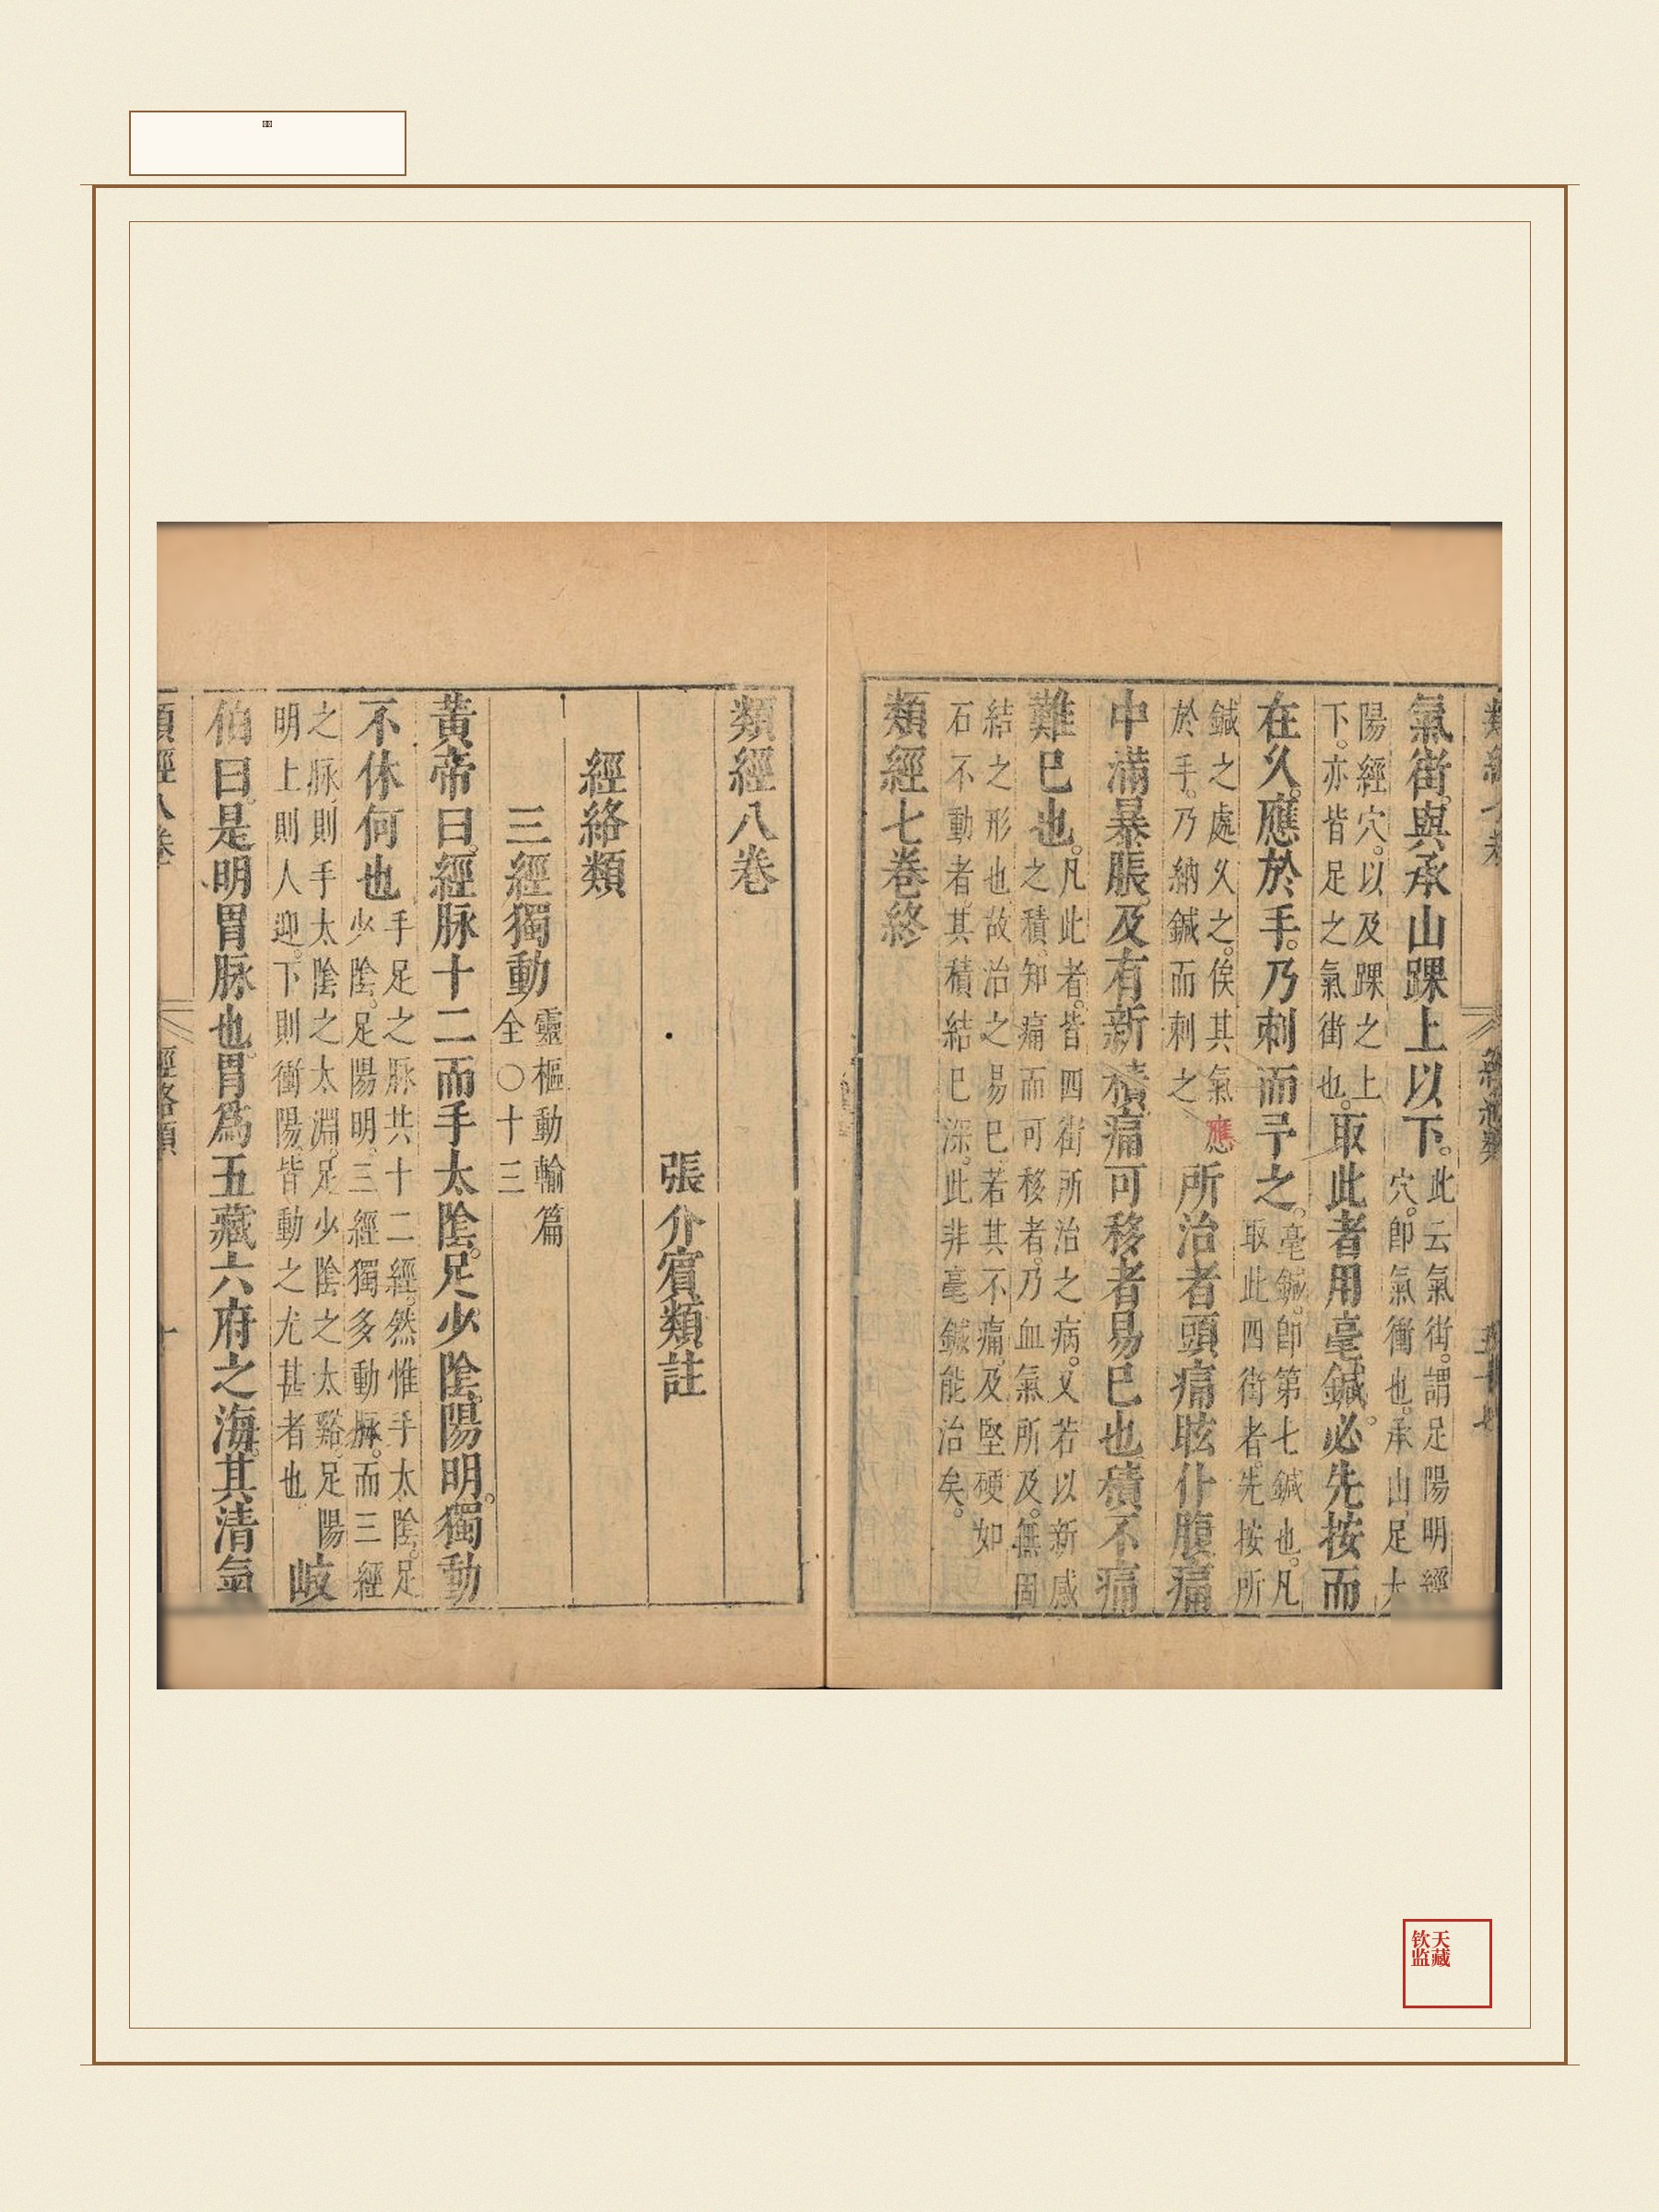 氣街與承山踝上以下。此云氣街。謂足陽明經穴。卽氣衝也。承山足太
陽經穴。以及踝之上下。亦皆足之氣街也。取此者用毫鍼。必先按而
在久。應於手。乃刺而予之。毫鍼。卽第七鍼也。凡取此四街者。先按所
鍼之處久之。俟其氣應於手。乃納鍼而刺之所治者頭痛眩仆腹痛
中滿暴脹。及有新積痛可移者易已也積不痛
難已也。凡此者。皆四街所治之病。又若以新感之積。知痛而可移者。乃血氣所及。無固
結之形也故治之易已若其不痛。及堅硬如石不動者。其積結已深。此非毫鍼能治矣。
類經七卷終
類經八卷
張介賓類註
經絡類
三經獨動靈樞動輸篇全○十三
黃帝曰。經脉十二而手太陰。足少陰。陽明。獨動
不休何也手足之脉共十二經。然惟手太陰。足少陰。足陽明。三經獨多動脉。而三經
之脉。則手太陰之太淵。足少陰之太谿。足陽明上則人迎。下則衝陽。皆動之尤甚者也岐
伯曰。是明胃脉也。胃爲五藏六府之海。其清氣
類經八卷
經絡類
天藏
钦监